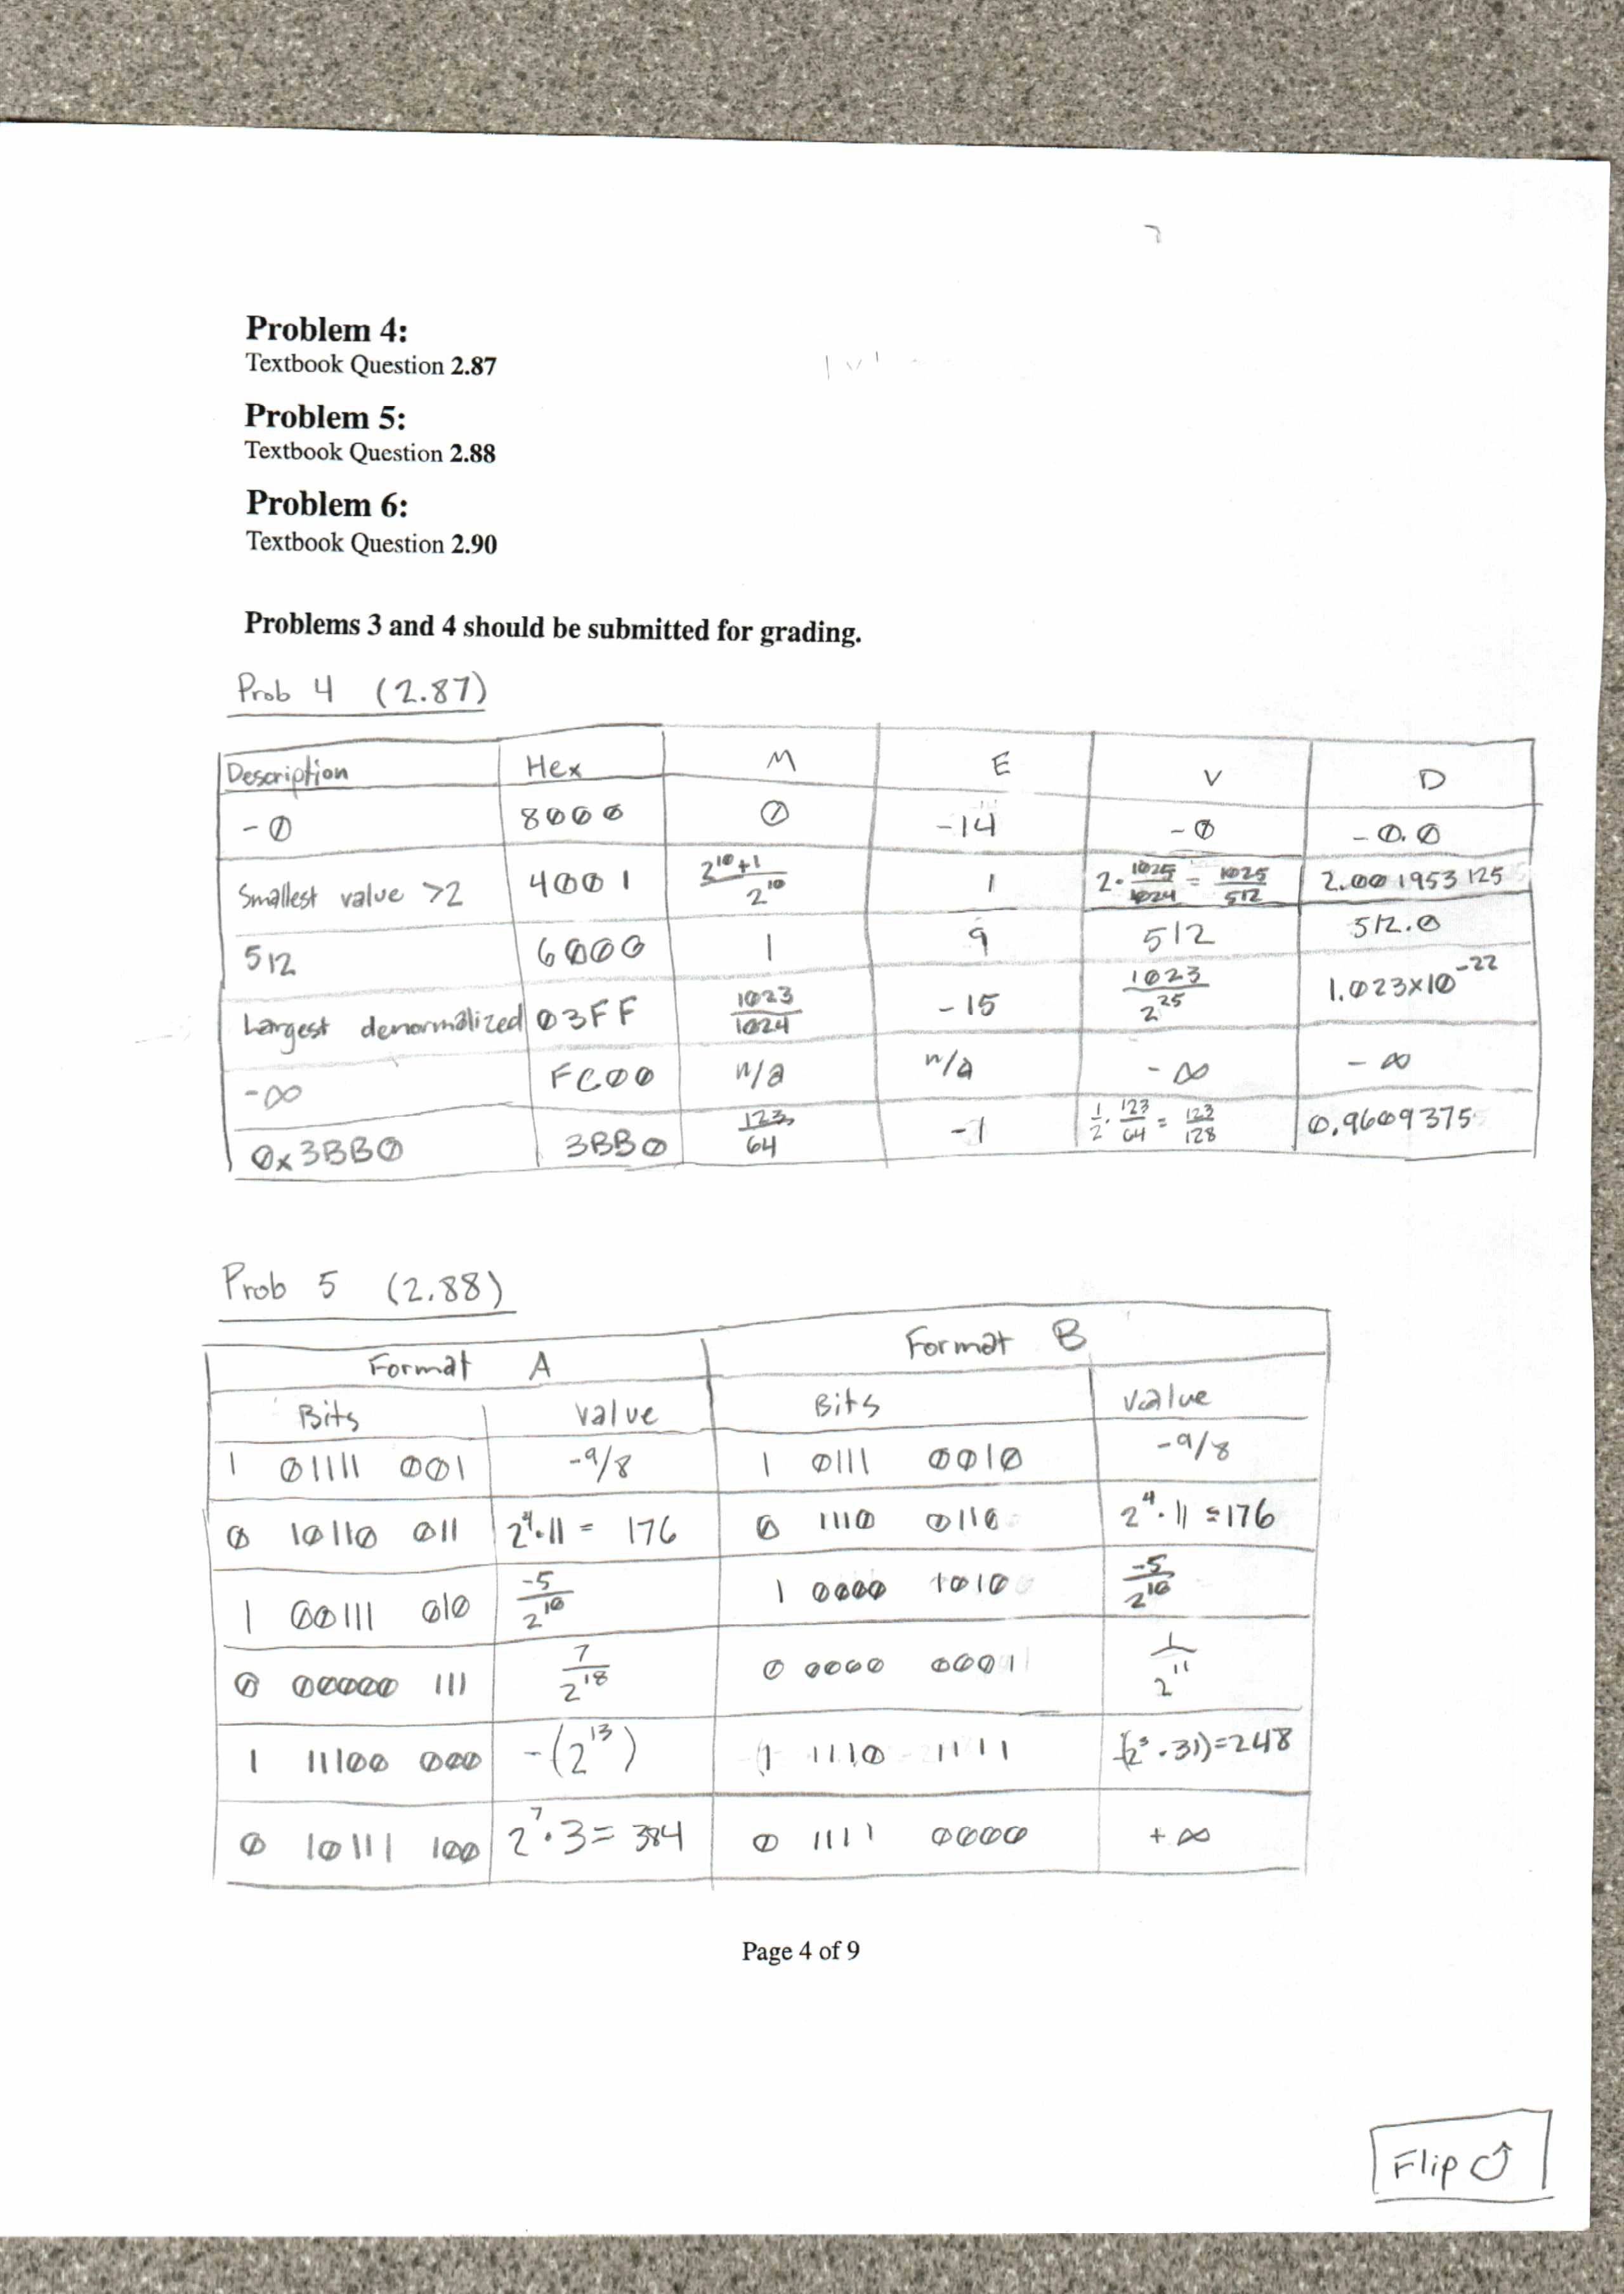 Problem 4:
Textbook Question 2.87
Problem 5:
Textbook Question 2.88
Problem 6:
Textbook Question 2.90
Problems 3 and 4 should be submitted for grading.
Prob 4 (2.87)
Description Hex M E V D
-0 8000 0 -14 -0 -0.0
Smallest value >2 4001 2^10+1/2^10 1 2·1025/1024 = 1025/512 2.001953125
512 6000 1 9 512 512.0
Largest denormalized 03FF 1023/1024 -15 1023/2^25 1.023x10^-22
-∞ FC00 n/a n/a -∞ -∞
0x3BB0 3BB0 123/64 -1 1/2·123/64 = 123/128 0.9609375
Prob 5 (2.88)
Format A Format B
Bits Value Bits Value
1 01111 001 -9/8 1 0111 0010 -9/8
0 10110 011 2^4·11 = 176 0 1110 0110 2^4·11 = 176
1 00111 010 -5/2^10 1 0000 1010 -5/2^10
0 00000 111 7/2^18 0 0000 0001 1/2^11
1 11100 000 -(2^13) 1 1110 1111 -(2^3·31)=248
0 10111 100 2^7·3 = 384 0 1111 0000 +∞
Page 4 of 9
Flip